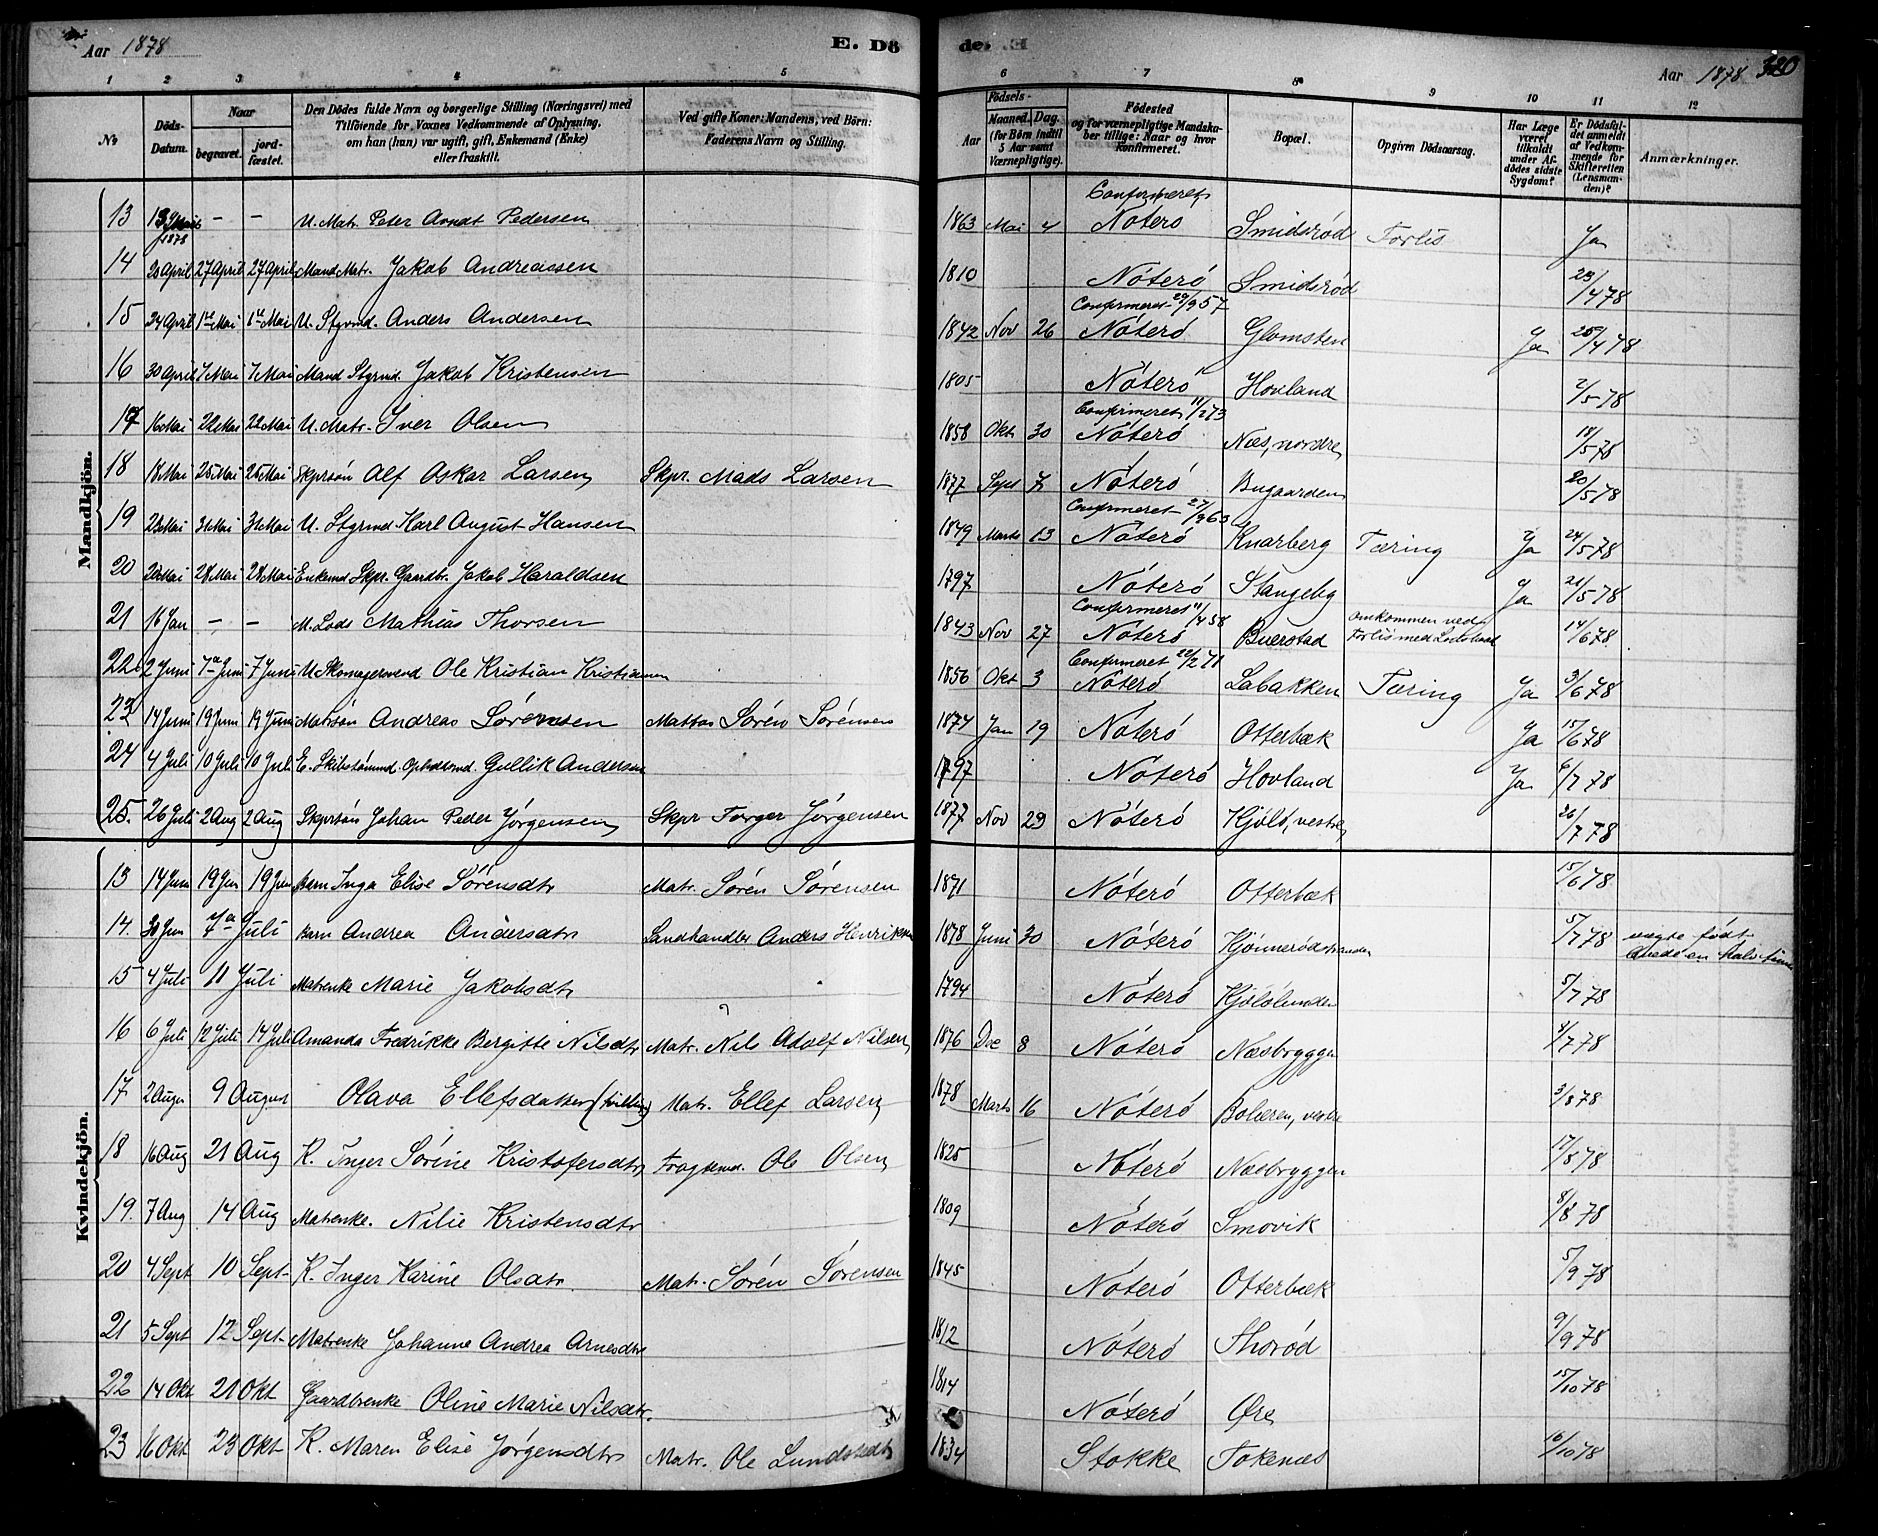 Aar 1878 E. Dö
de. E Aar 1878 320
1 2 3 4 5 6 7 8 9 10 11 12
No Döds-Datum. Naar begravet. jord-fæstet. Den Dödes fulde Navn og borgerlige Stilling (Næringsvei) med Tilföiende for Voxnes Vedkommende af Oplysning, om han (hun) var ugift, gift, Enkemand (Enke) eller fraskilt. Ved gifte Koner: Mandens, ved Börn: Faderens Navn og Stilling.
Födsels- Aar Maaned. Dag. (for Börn indtil 5 Aar samt Værnepligtige). Födested og for værnepligtige Mandskaber tillige: Naar og hvor konfirmeret. Bopæl. Opgiven Dödsaarsag. Har Læge været tilkaldt under Afdödes sidste Sygdom? Er Dödsfaldet anmeldt af Vedkommende for Skifteretten (Lensmanden)? Anmærkninger.
Mandkjön.
13 1878 – – U. Matr. Peter Arndt Pedersen 1863 Mai 4 Confirmeret Nöterö Smidsröd Forlis Ja
14 20 April 27 April 27 April Mand Matr. Jakob Andreassen 1810 Nöterö Smidsröd 23/4 78
15 24 April 1te Mai 1te Mai U. Styrmd. Anders Andersen 1842 Nov 26 Confirmeret 29/9 57 Nöterö Glomsten Ja 25/4 78
16 30 April 7 Mai 7 Mai Mand Styrmd. Jakob Kristensen 1805 Nöterö Hovland 2/5 78
17 16 Mai 22 Mai 22 Mai U. Matr. Iver Olsen 1858 Okt 30 Confirmeret 11/2 73 Nöterö Næs, nordre 18/5 78
18 18 Mai 25 Mai 25 Mai Skprsön Alf Oskar Larsen Skpr. Mads Larsen 1877 Sept 7 Nöterö Bugaarden 20/5 78
19 23 Mai 31 Mai 31 Mai U. Styrmd Karl August Hansen 1849 Marts 13 Confirmeret 27/9 63 Nöterö Knarberg Tæring Ja 24/5 78
20 20 Mai 28 Mai 28 Mai Enkemd Skpr. Gaardbr. Jakob Haraldsen 1797 Nöterö Stangeby Ja 21/5 78
21 16 Jan – – M. Lods Mathias Thorsen 1843 Nov 27 Confirmeret 11/4 58 Nöterö Buerstad omkommen ved Forlis med Lodsbaad 14/6 78
22 2 Juni 7de Juni 7 Juni U. Skomagersvend Ole Kristian Kristiansen 1856 Okt 3 Confirmeret 22/2 71 Nöterö Labakken Tæring Ja 3/6 78
23 14 Juni 19 Juni 19 Juni Matrsön Andreas Sörensen Matros Sörén Sörensen 1874 Jan 19 Nöterö Otterbæk Ja 15/6 78
24 4 Juli 10 Juli 10 Juli E. Skibstömmd. Opholdsmd. Gullik Andersen 1797 Nöterö Hovland Ja 6/7 78
25. 26 Juli 2 Aug 2 Aug Skprsön Johan Peder Jörgensen Skpr Torger Jörgensen 1877 Nov 29 Nöterö Kjölö, vestre 26/7 78
Kvindekjön.
13 14 Juni 19 Juni 19 Juni Barn Inga Elise Sörensdtr Matr. Sörén Sörensen 1871 Nöterö Otterbæk 15/6 78
14. 30 Jun 7de Juli Barn Andrea Andersdtr Landhandler Anders Henriksen 1878 Juni 30 Nöterö Kjönnerödstranden 5/7 78 ægte født
15 4 Juli 11 Juli Matrenke Marie Jakobsdtr 1794 Nöterö Kjölölunden 5/7 78
16 6 Juli 12 Juli 14 Juli Amanda Fredrikke Bergitte Nilsdtr Matr. Nils Adolf Nilsen 1876 Dec 8 Nöterö Næsbryggen 4/7 78
17 2 August 9 August Olava Ellefsdatter (tvilling) Matr. Ellef Larsen 1878 Marts 16 Nöterö Bolæren, vestre 3/8 78
18 16 Aug 21 Aug K. Inger Sörine Kristofersdtr Fragtemd. Ole Olsen 1825 Nöterö Næsbryggen 17/8 78
19. 7 Aug 14 Aug Matrenke. Nilie Kristensdtr 1809 Nöterö Smovik 8/8 78
20 4 Sept 10 Sept K. Inger Karine Olsdtr Matr. Sörén Sörensen 1845 Nöterö Otterbæk 5/9 78
21 5 Sept 12 Sept Matrenke Johanne Andrea Arnesdtr 1812 Nöterö Thoröd 9/9 78
22 14 Okt 21 Okt Gaardbrenke Oline Marie Nilsdtr. 1814 Nöterö Öre 15/10 78
23 16 Okt 23 Okt K. Maren Elise Jörgensdtr Matr. Ole Lundstedt 1834 Stokke Tokenæs 16/10 78